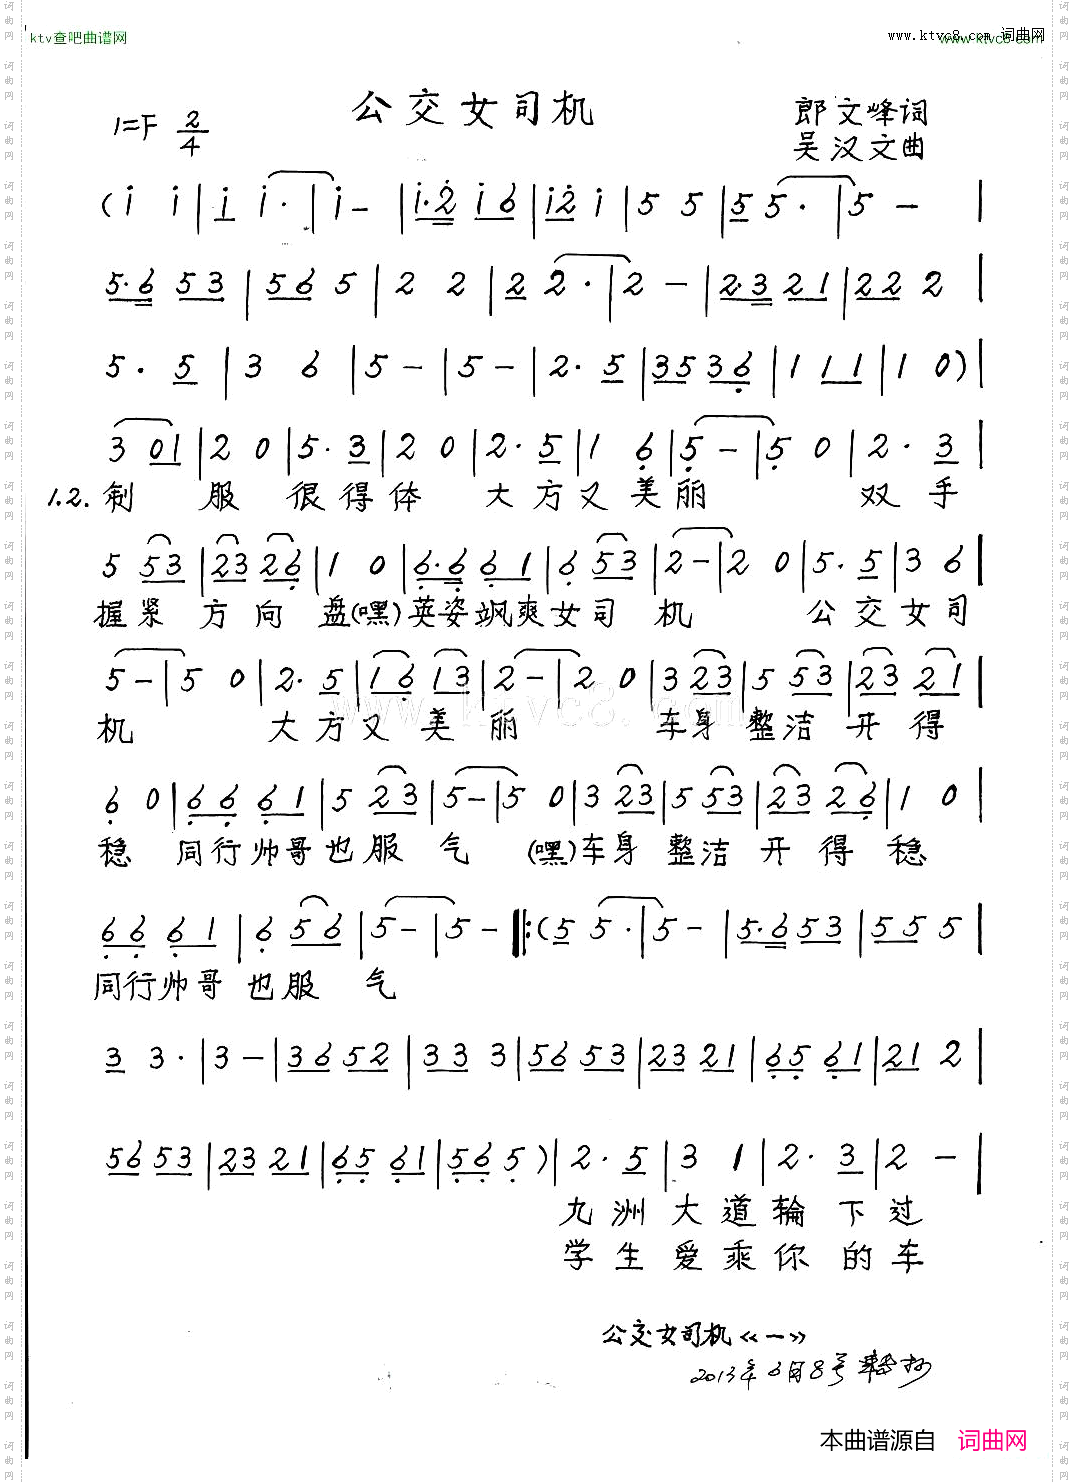 ktv查吧曲谱网
www.ktvc8.com 词曲网
公交女司机
1=F 2/4
郎文峰词
吴汉文曲
(i i | i i· | i - | i·2 i6 | i2 i | 5 5 | 5 5· | 5 - |
5·6 53 | 56 5 | 2 2 | 2 2· | 2 - | 2·3 21 | 22 2 |
5· 5 | 3 6 | 5 - | 5 - | 2· 5 | 35 36 | 1 11 | 1 0) |
3 01 | 2 0 | 5· 3 | 2 0 | 2· 5 | 1 6 | 5 - | 5 0 | 2· 3 |
1.2. 制 服 很得体 大方又美丽 双手
5 53 | 23 26 | 1 0 | 6·6 61 | 6 53 | 2 - | 2 0 | 5· 5 | 3 6 |
握紧 方向 盘(嘿)英姿飒爽女司 机 公交女司
5 - | 5 0 | 2· 5 | 16 13 | 2 - | 2 0 | 3 23 | 5 53 | 23 21 |
机 大方又美丽 车身整洁开得
6 0 | 66 61 | 5 23 | 5 - | 5 0 | 3 23 | 5 53 | 23 26 | 1 0 |
稳 同行帅哥也服气 (嘿)车身整洁开得稳
66 61 | 6 56 | 5 - | 5 - ‖: (5 5· | 5 - | 5·6 53 | 55 5 |
同行帅哥也服 气
3 3· | 3 - | 36 52 | 33 3 | 56 53 | 23 21 | 65 61 | 21 2 |
56 53 | 23 21 | 65 61 | 56 5) | 2· 5 | 3 1 | 2· 3 | 2 - |
九洲大道轮下过
学生爱乘你的车
公交女司机«一»
2013年6月8号
本曲谱源自 词曲网